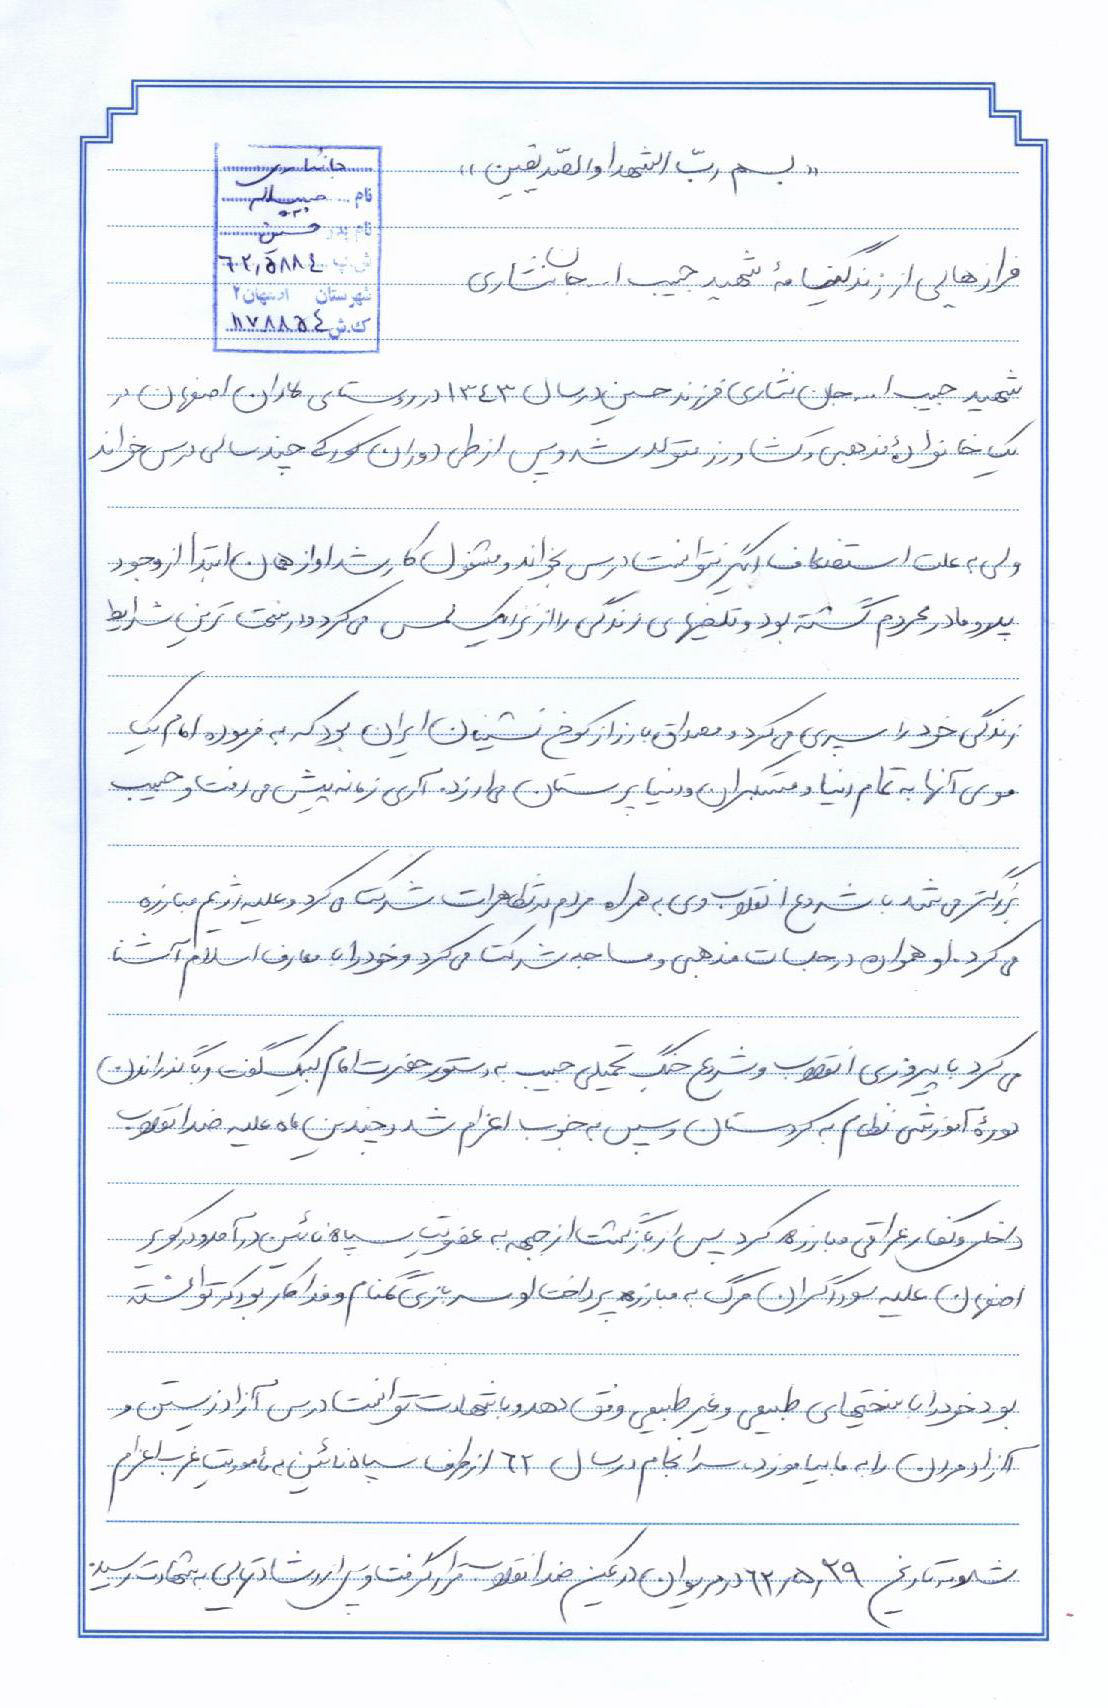 «بسم ربّ الشهدا والصّدیقین»
جانثاری
نام حبیب اله
نام پدر حسین
ش.پ ۶۲۰۵۸۸۴
شهرستان اصفهان ۲
ک.ش ۱۱۷۸۸۵۴
فرازهایی از زندگینامهٔ شهید حبیب ا... جان نثاری
شهید حبیب ا... جان نثاری فرزند حسین در سال ۱۳۴۳ در روستای اصفهان در
یک خانوادهٔ مذهبی و کشاورز متولد شد و پس از طی دوران کودکی چند سالی درس خواند
ولی به علت استضعاف نتوانست درس بخواند و مشغول کار شد او از همان ابتدا از وجود
پدر و مادر محروم گشته بود و تلخیهای زندگی را از نزدیک لمس می کرد و در سخت ترین شرایط
زندگی خود را سپری می کرد و مصداق بارز از کوخ نشینان ایران بود که به فرموده امام یک
موی آنها به تمام دنیا و مستکبران و دنیا پرستان می ارزد. آری زمانه پیش می رفت و حبیب
بزرگتر می شد با شروع انقلاب وی به همراه مردم در تظاهرات شرکت می کرد و علیه رژیم مبارزه
می کرد. او همواره در جلسات مذهبی و مساجد شرکت می کرد و خود را با معارف اسلام آشنا
می کرد با پیروزی انقلاب و شروع جنگ تحمیلی حبیب به دستور حضرت امام لبیک گفت و با گذراندن
دورهٔ آموزشی نظام به کردستان و سپس به جنوب اعزام شد و چندین ماه علیه ضد انقلاب
داخلی و کفار عراقی مبارزه کرد پس از بازگشت از جبهه به عضویت سپاه نائین در آمد و در کویر
اصفهان علیه سوداگران مرگ به مبارزه پرداخت او سربازی گمنام و فداکار بود که توانسته
بود خود را با سختیهای طبیعی و غیر طبیعی وفق دهد و با شهادت توانست درس آزاد زیستن و
آزاد مردن را به ما بیاموزد. سرانجام در سال ۶۲ از طرف سپاه نائین به مأموریت غرب اعزام
شد و در تاریخ ۶۲/۵/۲۹ در مریوان در کمین ضد انقلاب قرار گرفت و پس از به شهادت رسید